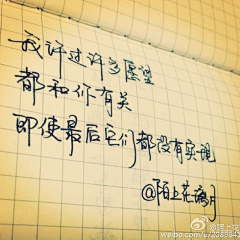 我许过许多愿望
都和你有关
即使最后它们都没有实现
@陌上花满月